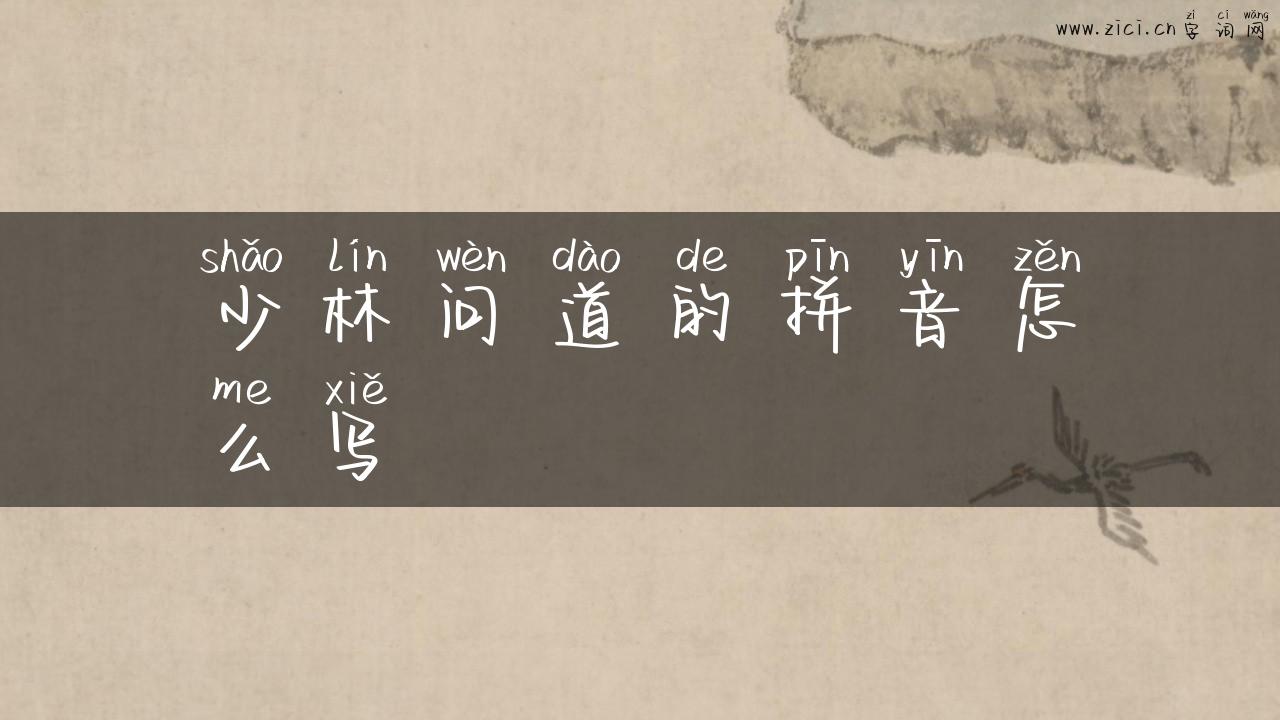 zì cí wǎng
www.zici.cn 字 词 网
shǎo lín wèn dào de pīn yīn zěn
少 林 问 道 的 拼 音 怎
me xiě
么 写